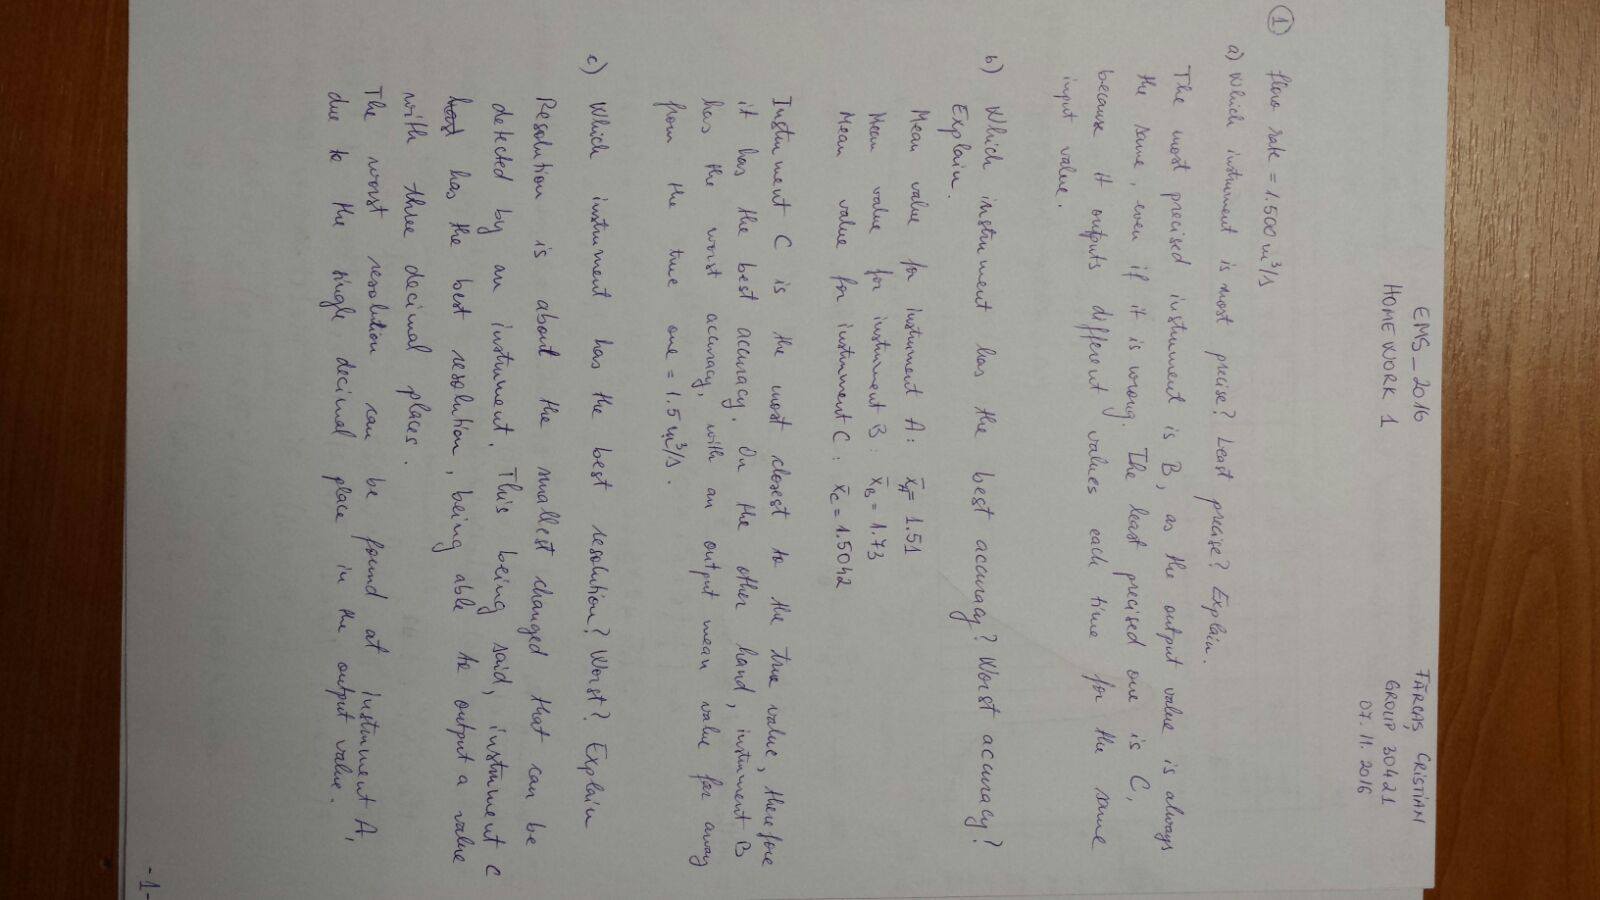 EMS_2016
HOMEWORK 1
FĂRCAȘ CRISTIAN
GROUP 30421
07.11.2016
① flow rate = 1.500 m³/s
a) Which instrument is most precise? Least precise? Explain.
The most precised instrument is B, as the output value is always
the same, even if it is wrong. The least precised one is C,
because it outputs different values each time for the same
input value.
b) Which instrument has the best accuracy? Worst accuracy?
Explain.
Mean value for instrument A: x̄_A = 1.51
Mean value for instrument B: x̄_B = 1.73
Mean value for instrument C: x̄_C = 1.5042
Instrument C is the most closest to the true value, therefore
it has the best accuracy. On the other hand, instrument B
has the worst accuracy, with an output mean value far away
from the true one = 1.5 m³/s.
c) Which instrument has the best resolution? Worst? Explain
Resolution is about the smallest changed that can be
detected by an instrument. This being said, instrument C
has the best resolution, being able to output a value
with three decimal places.
The worst resolution can be found at instrument A,
due to the single decimal place in the output value.
-1-